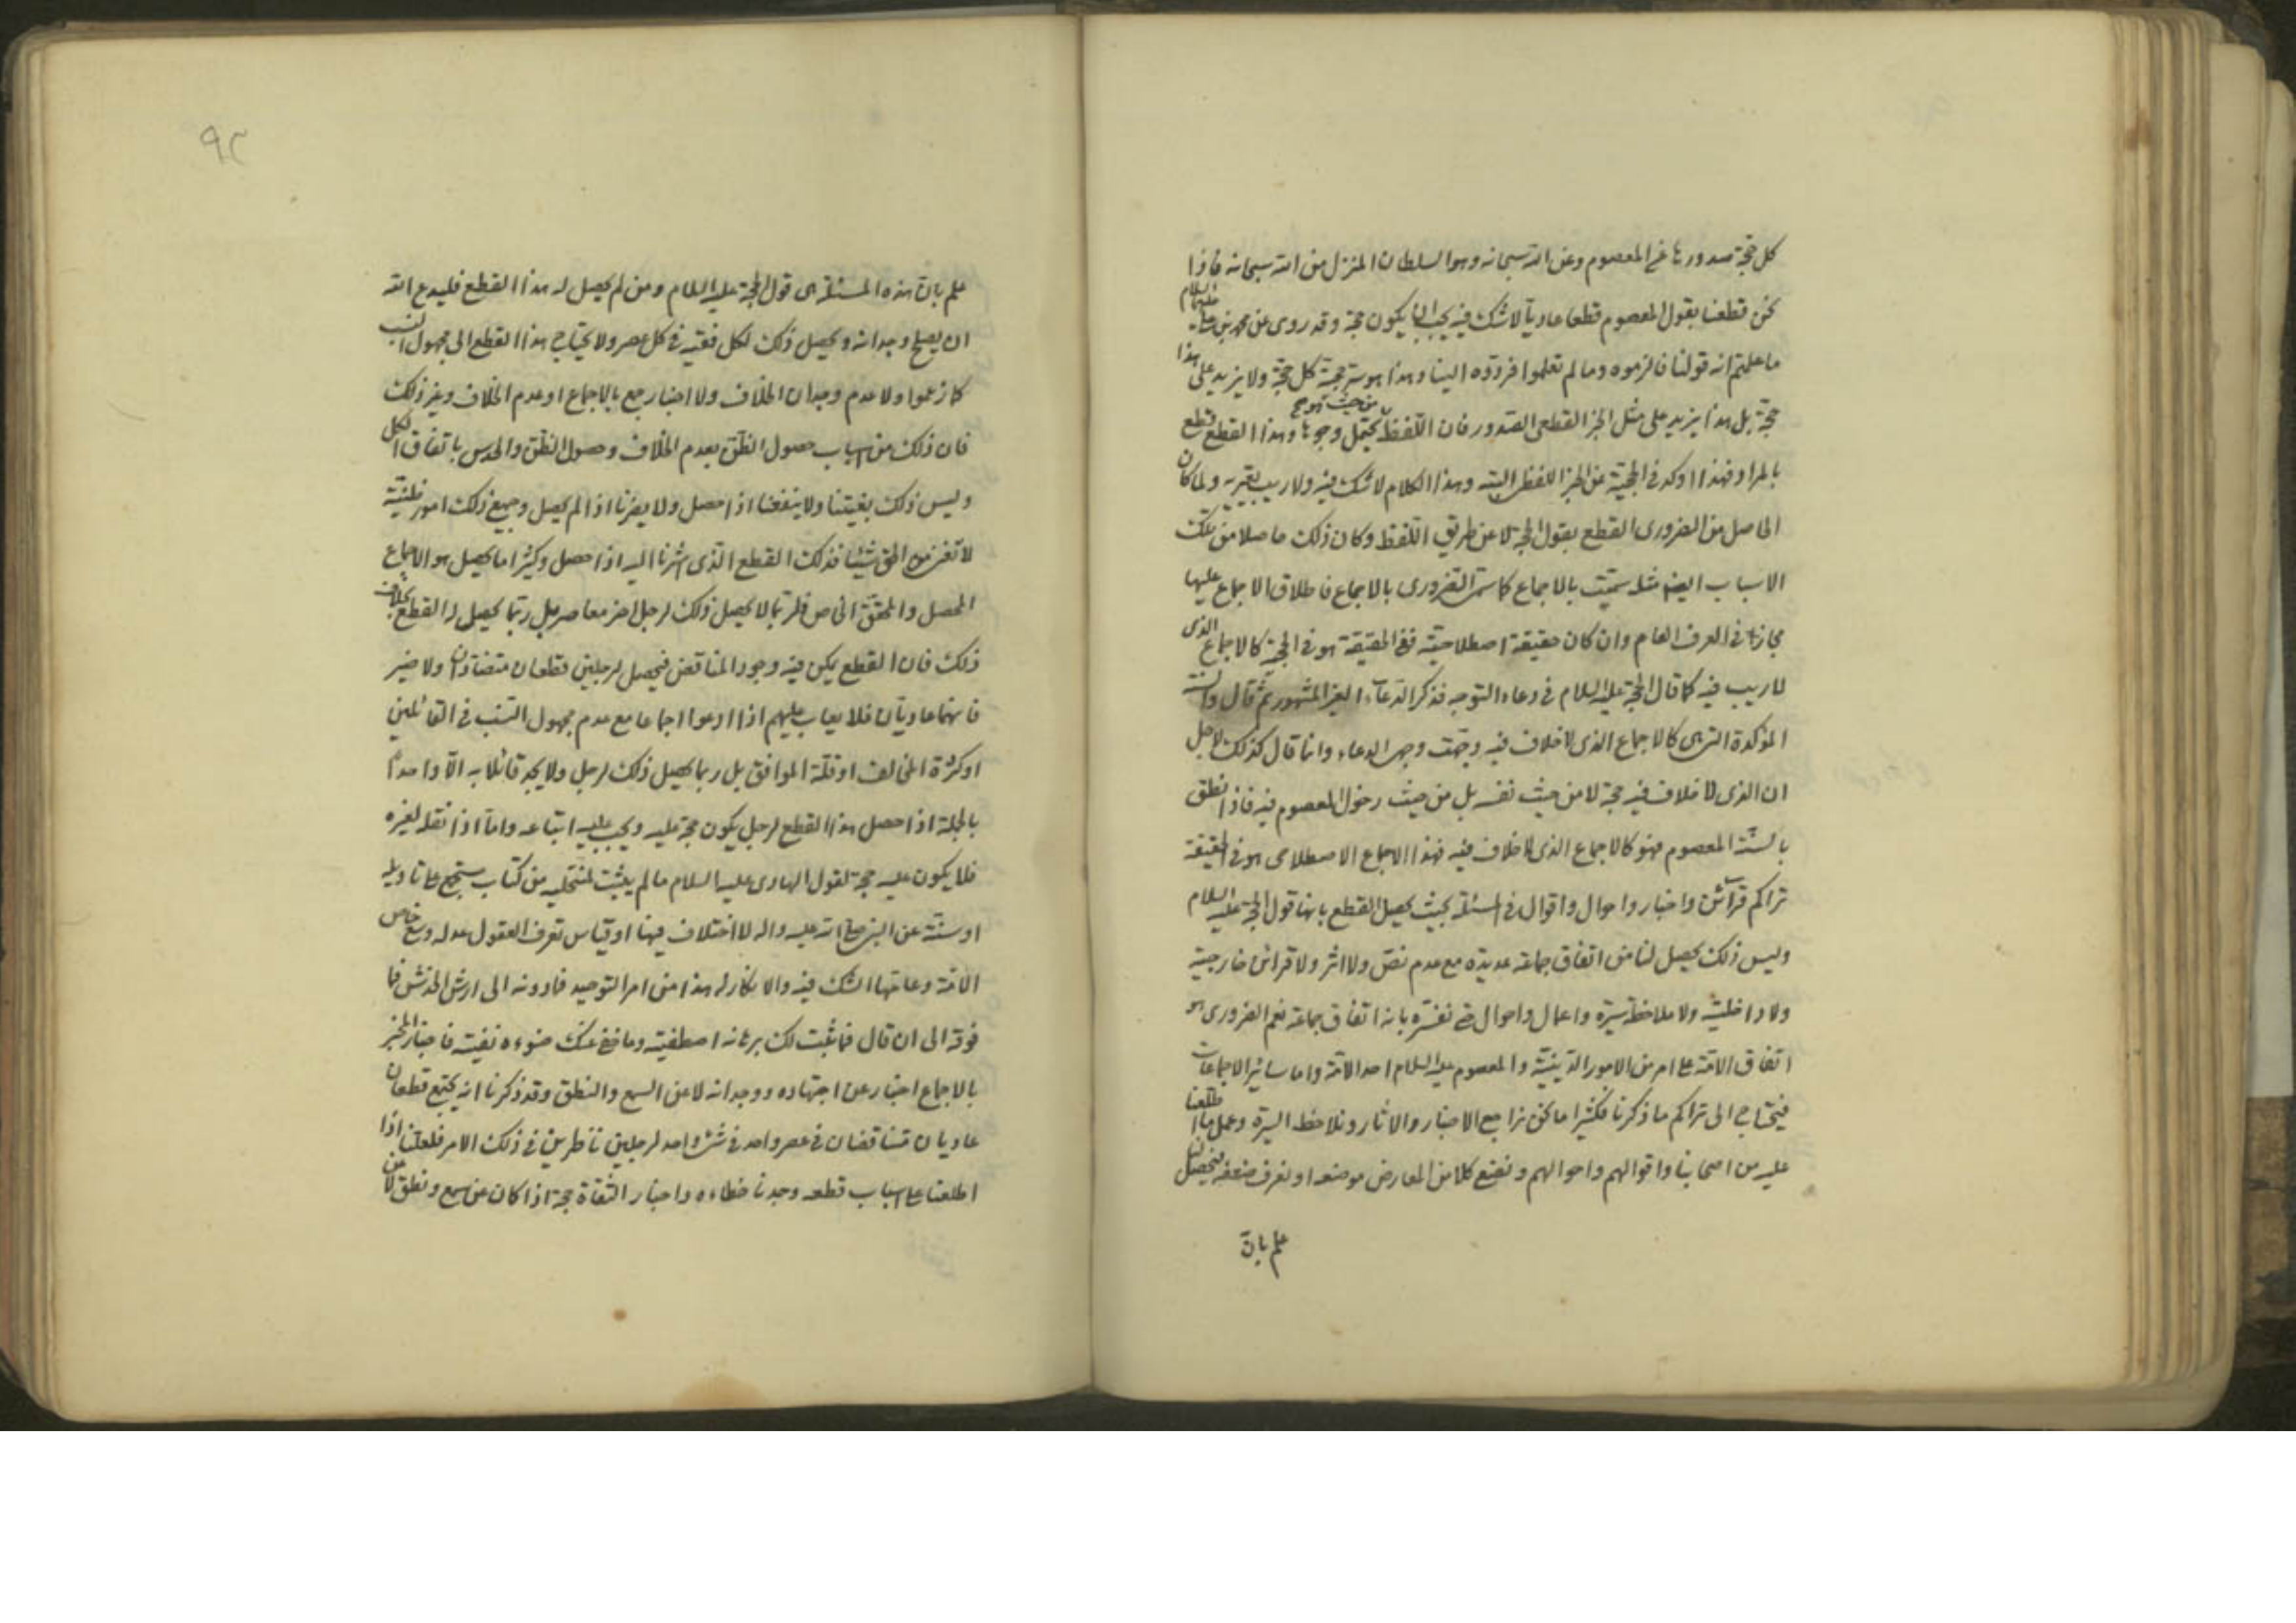 كل حجة صدورها عن المعصوم وعن الله سبحانه وهو السلطان المنزل من الله سبحانه فاذا
نحن قطعنا بقول المعصوم قطعا عاديا لا شك فيه يجب ان يكون حجة وقد روى عن محمد بن علي عليهما السلام
ما علمتم انه قولنا فالزموه وما لم تعلموا فردوه الينا وهذا هو سر حجية كل حجة ولا يزيد على هذا
حجة بل هذا يزيد على مثل الخبر القطعي الصدور فان اللفظ من حيث هو هو يحتمل وجوها وهذا القطع قطع
بالمراد فهذا اوكد في الحجية من الخبر اللفظي البتة وهذا الكلام لا شك فيه ولا ريب يعتريه ولما كان
الحاصل من الضروري القطع بقول الحجة لا عن طريق اللفظ وكان ذلك حاصلا من تلك
الاسباب ايضا مثله سميت بالاجماع كما سمي الضروري بالاجماع فاطلاق الاجماع عليها
مجاز في العرف العام وان كان حقيقة اصطلاحية ففي الحقيقة هو في الحجية كالاجماع الذي
لا ريب فيه كما قال الحجة عليه السلام في دعاء التوجه فذكر الدعاء الغير المشهور ثم قال والسنة
المؤكدة التي هي كالاجماع الذي لا خلاف فيه وجهت وجهي الدعاء وانما قال كذلك لاجل
ان الذي لا خلاف فيه حجة لا من حيث نفسه بل من حيث دخول المعصوم فيه فاذا نطق
بالسنة المعصوم فهو كالاجماع الذي لا خلاف فيه فهذا الاجماع الاصطلاحي هو في الحقيقة
تراكم قرائن واخبار واحوال واقوال في المسئلة بحيث يحصل القطع بانها قول الحجة عليه السلام
وليس ذلك يحصل لنا من اتفاق جماعة عديدة مع عدم نص ولا اثر ولا قرائن خارجية
ولا داخلية ولا ملاحظة سيرة واعمال واحوال حتى نفسره بانه اتفاق جماعة نعم الضروري هو
اتفاق الامة على امر من الامور الدينية والمعصوم عليه السلام احد الامة واما سائر الاجماعات
فيحتاج الى تراكم ما ذكرنا فكثيرا ما نحن نراجع الاخبار والاثار ونلاحظ السيرة وعمل ما اطلعنا
عليه من اصحابنا واقوالهم واحوالهم ونضع كلا من المعارض موضعه او نعرف ضعفه فيحصل لنا
علم بان
٩٢
علم بان هذه المسئلة هي قول الحجة عليه السلام ومن لم يحصل له هذا القطع فليدع الله
ان يصلح وجدانه ويحصل ذلك لكل فقيه في كل عصر ولا يحتاج هذا القطع الى مجهول النسب
كما زعموا ولا عدم وجدان الخلاف ولا اخبار جمع بالاجماع او عدم الخلاف وغير ذلك
فان ذلك من اسباب حصول الظن بعدم الخلاف وحصول الظن والحدس باتفاق الكل
وليس ذلك بغيتنا ولا ينفعنا اذا حصل ولا يضرنا اذا لم يحصل وجميع ذلك امور ظنية
لا تغني من الحق شيئا فذلك القطع الذي اشرنا اليه اذا حصل وكثيرا ما يحصل هو الاجماع
المحصل والمحقق الخاص فلربما لا يحصل ذلك لرجل اخر معاصر بل ربما يحصل له القطع بخلاف
ذلك فان القطع يمكن فيه وجود المناقض فيحصل لرجلين قطعان متضادان ولا ضير
فانهما عاديان فلا يعاب عليهم اذا ادعوا اجماعا مع عدم مجهول النسب في القائلين
او كثرة المخالف او قلة الموافق بل ربما يحصل ذلك لرجل ولا يجد قائلا به الا واحدا
بالجملة اذا حصل هذا القطع لرجل يكون حجة عليه ويجب عليه اتباعه واما اذا نقله لغيره
فلا يكون عليه حجة لقول الهادي عليه السلام ما لم يثبت لمنتحليه من كتاب مستجمع على تاويله
او سنة عن النبي صلى الله عليه واله لا اختلاف فيها او قياس تعرف العقول عدله وسع خاص
الامة وعامتها الشك فيه والانكار له هذا من امر التوحيد فما دونه الى ارش الخدش فما
فوقه الى ان قال فما ثبت لك برهانه اصطفيته وما خفي عنك ضوءه نفيته فاخبار المخبر
بالاجماع اخبار عن اجتهاده ووجدانه لا عن السمع والنطق وقد ذكرنا انه يجتمع قطعان
عاديان متناقضان في عصر واحد في شيء واحد لرجلين ناظرين في ذلك الامر فلعلنا اذا
اطلعنا على اسباب قطعه وجدنا خطاءه واخبار الثقاة حجة اذا كان عن سمع ونطق لا عن